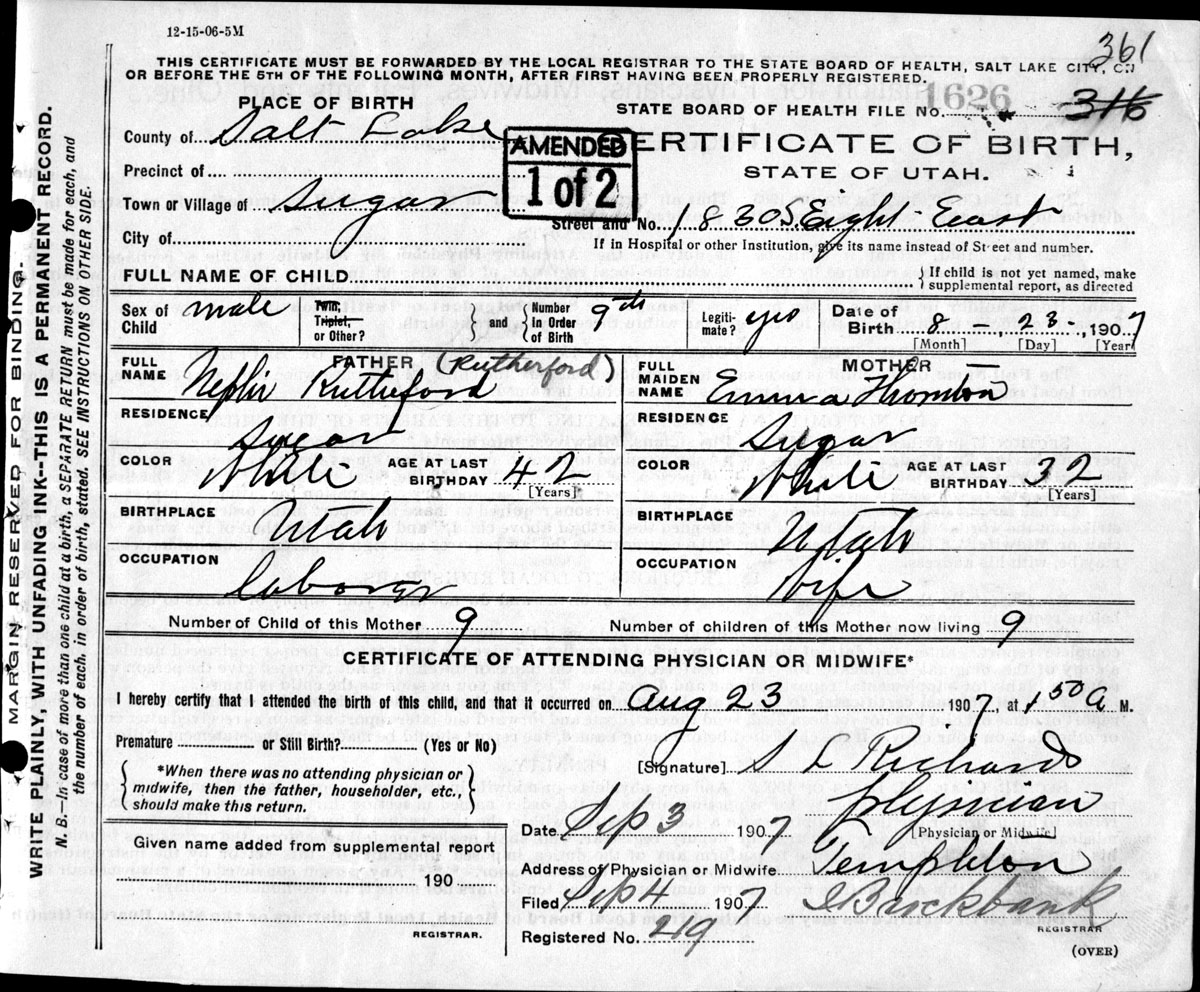 12-15-06-5M
361
THIS CERTIFICATE MUST BE FORWARDED BY THE LOCAL REGISTRAR TO THE STATE BOARD OF HEALTH, SALT LAKE CITY,
OR BEFORE THE 5TH OF THE FOLLOWING MONTH, AFTER FIRST HAVING BEEN PROPERLY REGISTERED.
PLACE OF BIRTH
STATE BOARD OF HEALTH FILE No. 1626 316
County of Salt Lake
AMENDED
1 of 2
CERTIFICATE OF BIRTH,
STATE OF UTAH.
Precinct of
Town or Village of Sugar
Street and No. 1830 S. Eight East
City of
If in Hospital or other Institution, give its name instead of Street and number.
FULL NAME OF CHILD
If child is not yet named, make
supplemental report, as directed
Sex of Child male
Twin, Triplet, or Other?
and
Number in Order of Birth 9th
Legiti-mate? yes
Date of Birth 8 - 23 - 1907
[Month] [Day] [Year]
FATHER (Rutherford)
FULL NAME Nephi Rutteford
MOTHER
FULL MAIDEN NAME Emma Thornton
RESIDENCE Sugar
RESIDENCE Sugar
COLOR White AGE AT LAST BIRTHDAY 42 [Years]
COLOR White AGE AT LAST BIRTHDAY 32 [Years]
BIRTHPLACE Utah
BIRTHPLACE Utah
OCCUPATION Laborer
OCCUPATION Wife
Number of Child of this Mother 9
Number of children of this Mother now living 9
CERTIFICATE OF ATTENDING PHYSICIAN OR MIDWIFE*
I hereby certify that I attended the birth of this child, and that it occurred on Aug 23 1907, at 1 50 a M.
Premature or Still Birth? (Yes or No)
[Signature] S L Richards
*When there was no attending physician or
midwife, then the father, householder, etc.,
should make this return.
physician
[Physician or Midwife]
Date Sep 3 1907
Given name added from supplemental report
190
REGISTRAR.
Address of Physician or Midwife Templeton
Filed Sep 4 1907
REGISTRAR
Registered No. 219
(OVER)
MARGIN RESERVED FOR BINDING.
WRITE PLAINLY, WITH UNFADING INK--THIS IS A PERMANENT RECORD.
N. B.--In case of more than one child at a birth, a SEPARATE RETURN must be made for each, and
the number of each, in order of birth, stated. SEE INSTRUCTIONS ON OTHER SIDE.